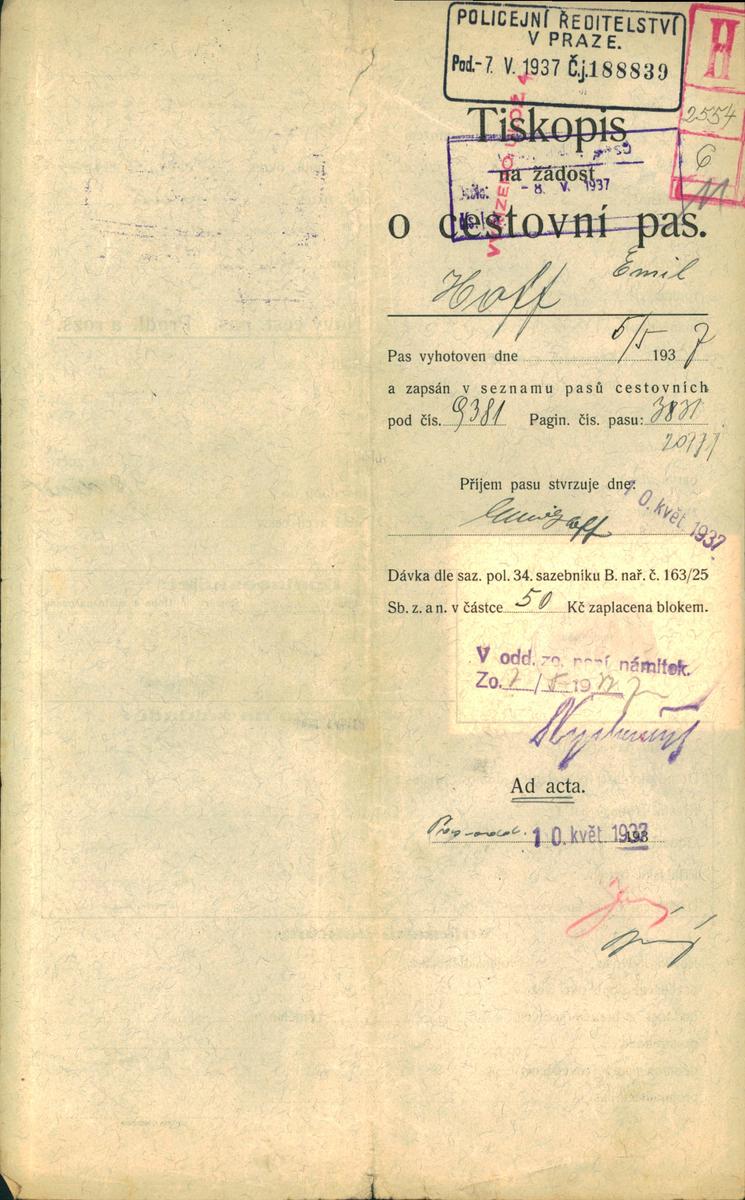 POLICEJNÍ ŘEDITELSTVÍ
V PRAZE.
Pod.-7. V. 1937 Č.j.188839
H
2554
6
11
Tiskopis
na žádost
- 8. V. 1937
o cestovní pas.
Hoff Emil
Pas vyhotoven dne 5/5 1937
a zapsán v seznamu pasů cestovních
pod čís. 9381 Pagin. čís. pasu:
Příjem pasu stvrzuje dne:
10. květ. 1937
Dávka dle saz. pol. 34. sazebníku B. nař. č. 163/25
Sb. z. a n. v částce 50 Kč zaplacena blokem.
V odd. zo. není námitek.
Zo. 7/5 19
Ad acta.
10. květ. 1937
193